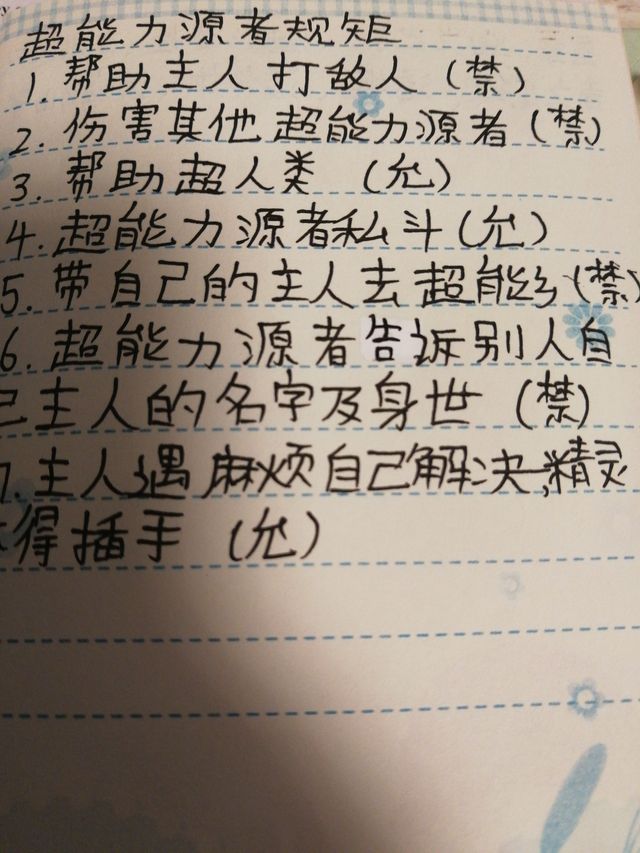 超能力源者规矩
1. 帮助主人打敌人（禁）
2. 伤害其他超能力源者（禁）
3. 帮助超人类（允）
4. 超能力源者私斗（允）
5. 带自己的主人去超能（禁）
6. 超能力源者告诉别人自
己主人的名字及身世（禁）
7. 主人遇麻烦自己解决,精灵
得插手（允）